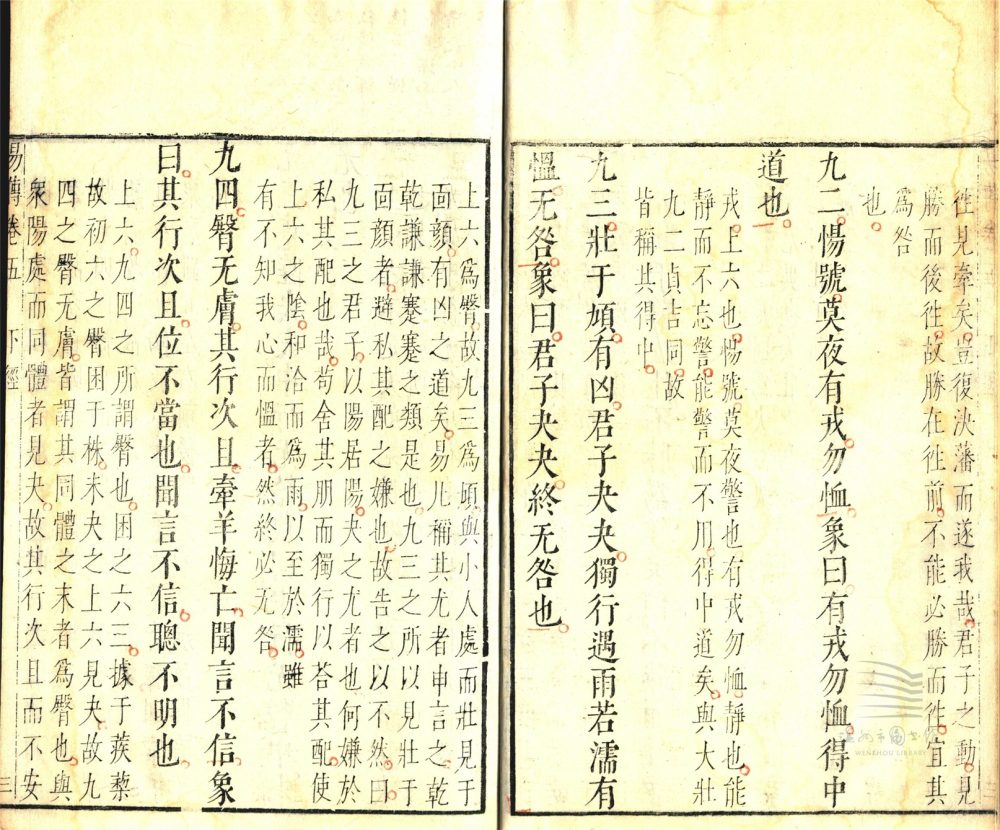 徃見牽矣豈復決藩而遂我哉君子之動見
勝而後徃故勝在徃前不能必勝而徃宜其
爲咎
也
九二惕號莫夜有戎勿恤象曰有戎勿恤得中
道也
戎上六也惕號莫夜警也有戎勿恤靜也能
靜而不忘警能警而不用得中道矣與大壯
九二貞吉同故
皆稱其得中
九三壯于頄有凶君子夬夬獨行遇雨若濡有
慍无咎象曰君子夬夬終无咎也
上六爲臀故九三爲頄與小人處而壯見于
面顔有凶之道矣易凡稱其尤者申言之乾
乾謙謙蹇蹇之類是也九三之所以見壯于
面顔者避私其配之嫌也故告之以不然曰
九三之君子以陽居陽夬之尤者也何嫌於
私其配也哉苟舍其朋而獨行以荅其配使
上六之陰和洽而爲雨以至於濡雖
有不知我心而慍者然終必无咎
九四臀无膚其行次且牽羊悔亡聞言不信象
曰其行次且位不當也聞言不信聰不明也
上六九四之所謂臀也困之六三據于蒺藜
故初六之臀困于株未夬之上六見夬故九
四之臀无膚皆謂其同體之末者爲臀也與
衆陽處而同體者見夬故其行次且而不安
易傳卷五 下經 三
溫州市圖書館
WENZHOU LIBRARY